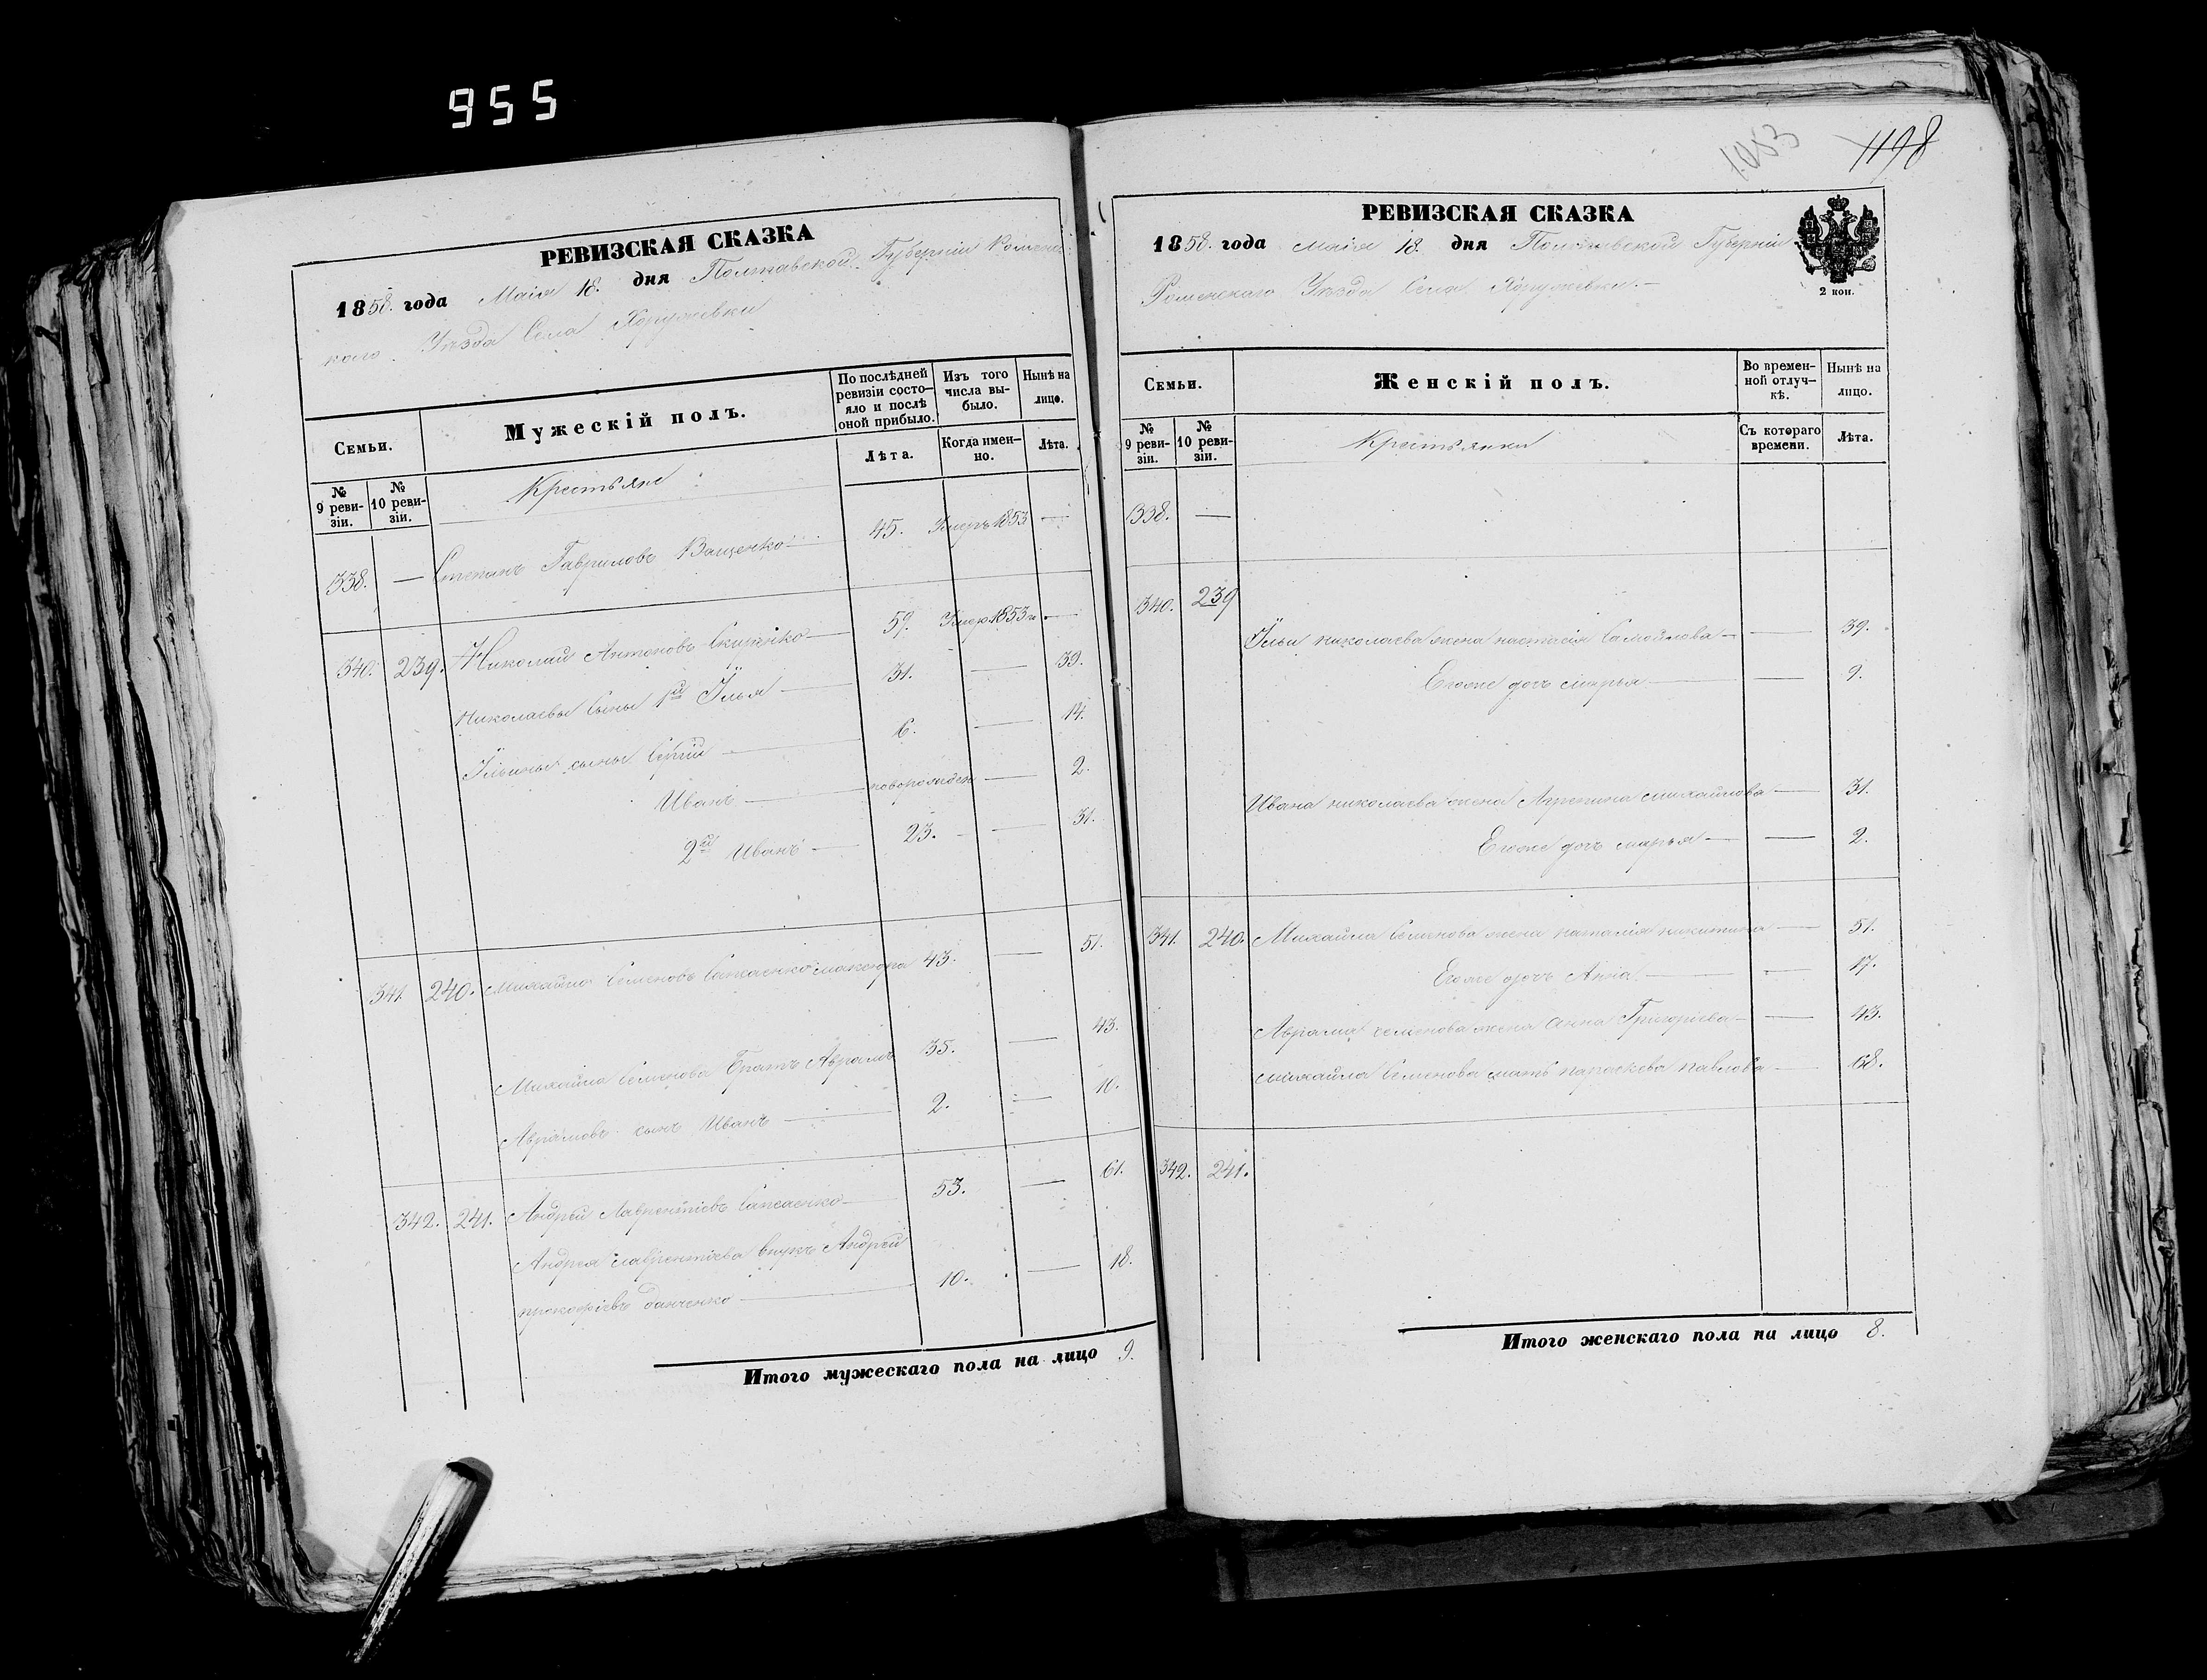 955
РЕВИЗСКАЯ СКАЗКА
1858. года Маія 18. дня Полтавской Губерніи Роменс-
каго Уѣзда Села Хоружевки
Семьи.
Мужескій полъ.
По послѣдней ревизіи состо-яло и послѣ оной прибыло.
Изъ того числа вы-было.
Нынѣ на лицо.
№ 9 реви-зіи.
№ 10 реви-зіи.
Крестьяне
Лѣта.
Когда имен-но.
Лѣта.
338. — Степанъ Гавриловъ Ващенко 45. Умеръ 1853 —
340. 239. Николай Антоновъ 59. Умер. 1853 г. —
Николаевы сыны 1й Илья — 31. — 39.
Ильины сыны Сергій — 6. — 14.
Иванъ — новорожден — 2.
2й Иванъ — 23. — 31.
341. 240. Михайло Семеновъ 43. — 51.
Михайла Семенова братъ Аврамъ 35. — 43.
Аврамовъ сынъ Иванъ — 2. — 10.
342. 241. Андрей Лаврентіевъ 53. — 61.
Андрея Лаврентіева внукъ Андрей
прокофіевъ 10. — 18.
Итого мужескаго пола на лицо 9.
1053
1198
РЕВИЗСКАЯ СКАЗКА
1858. года Маія 18. дня Полтавской Губерніи
Роменскаго Уѣзда Села Хоружевки.—
2 коп.
Семьи.
Женскій полъ.
Во времен-ной отлуч-кѣ.
Нынѣ на лицо.
№ 9 реви-зіи.
№ 10 реви-зіи.
Крестьянки
Съ котораго времени.
Лѣта.
338. —
340. 239
Ильи николаева жена настасія Самойлова — — 39.
Егоже дочь марья — — 9.
Ивана николаева жена Агрепина михайлова — 31.
Егоже дочь марья — — 2.
341. 240. Михайла Семенова жена наталія никитина — 51.
Егоже дочь Анна — — 17.
Аврама семенова жена Анна Григоріева — — 43.
михайла Семенова мать параскева павлова — 68.
342. 241.
Итого женскаго пола на лицо 8.